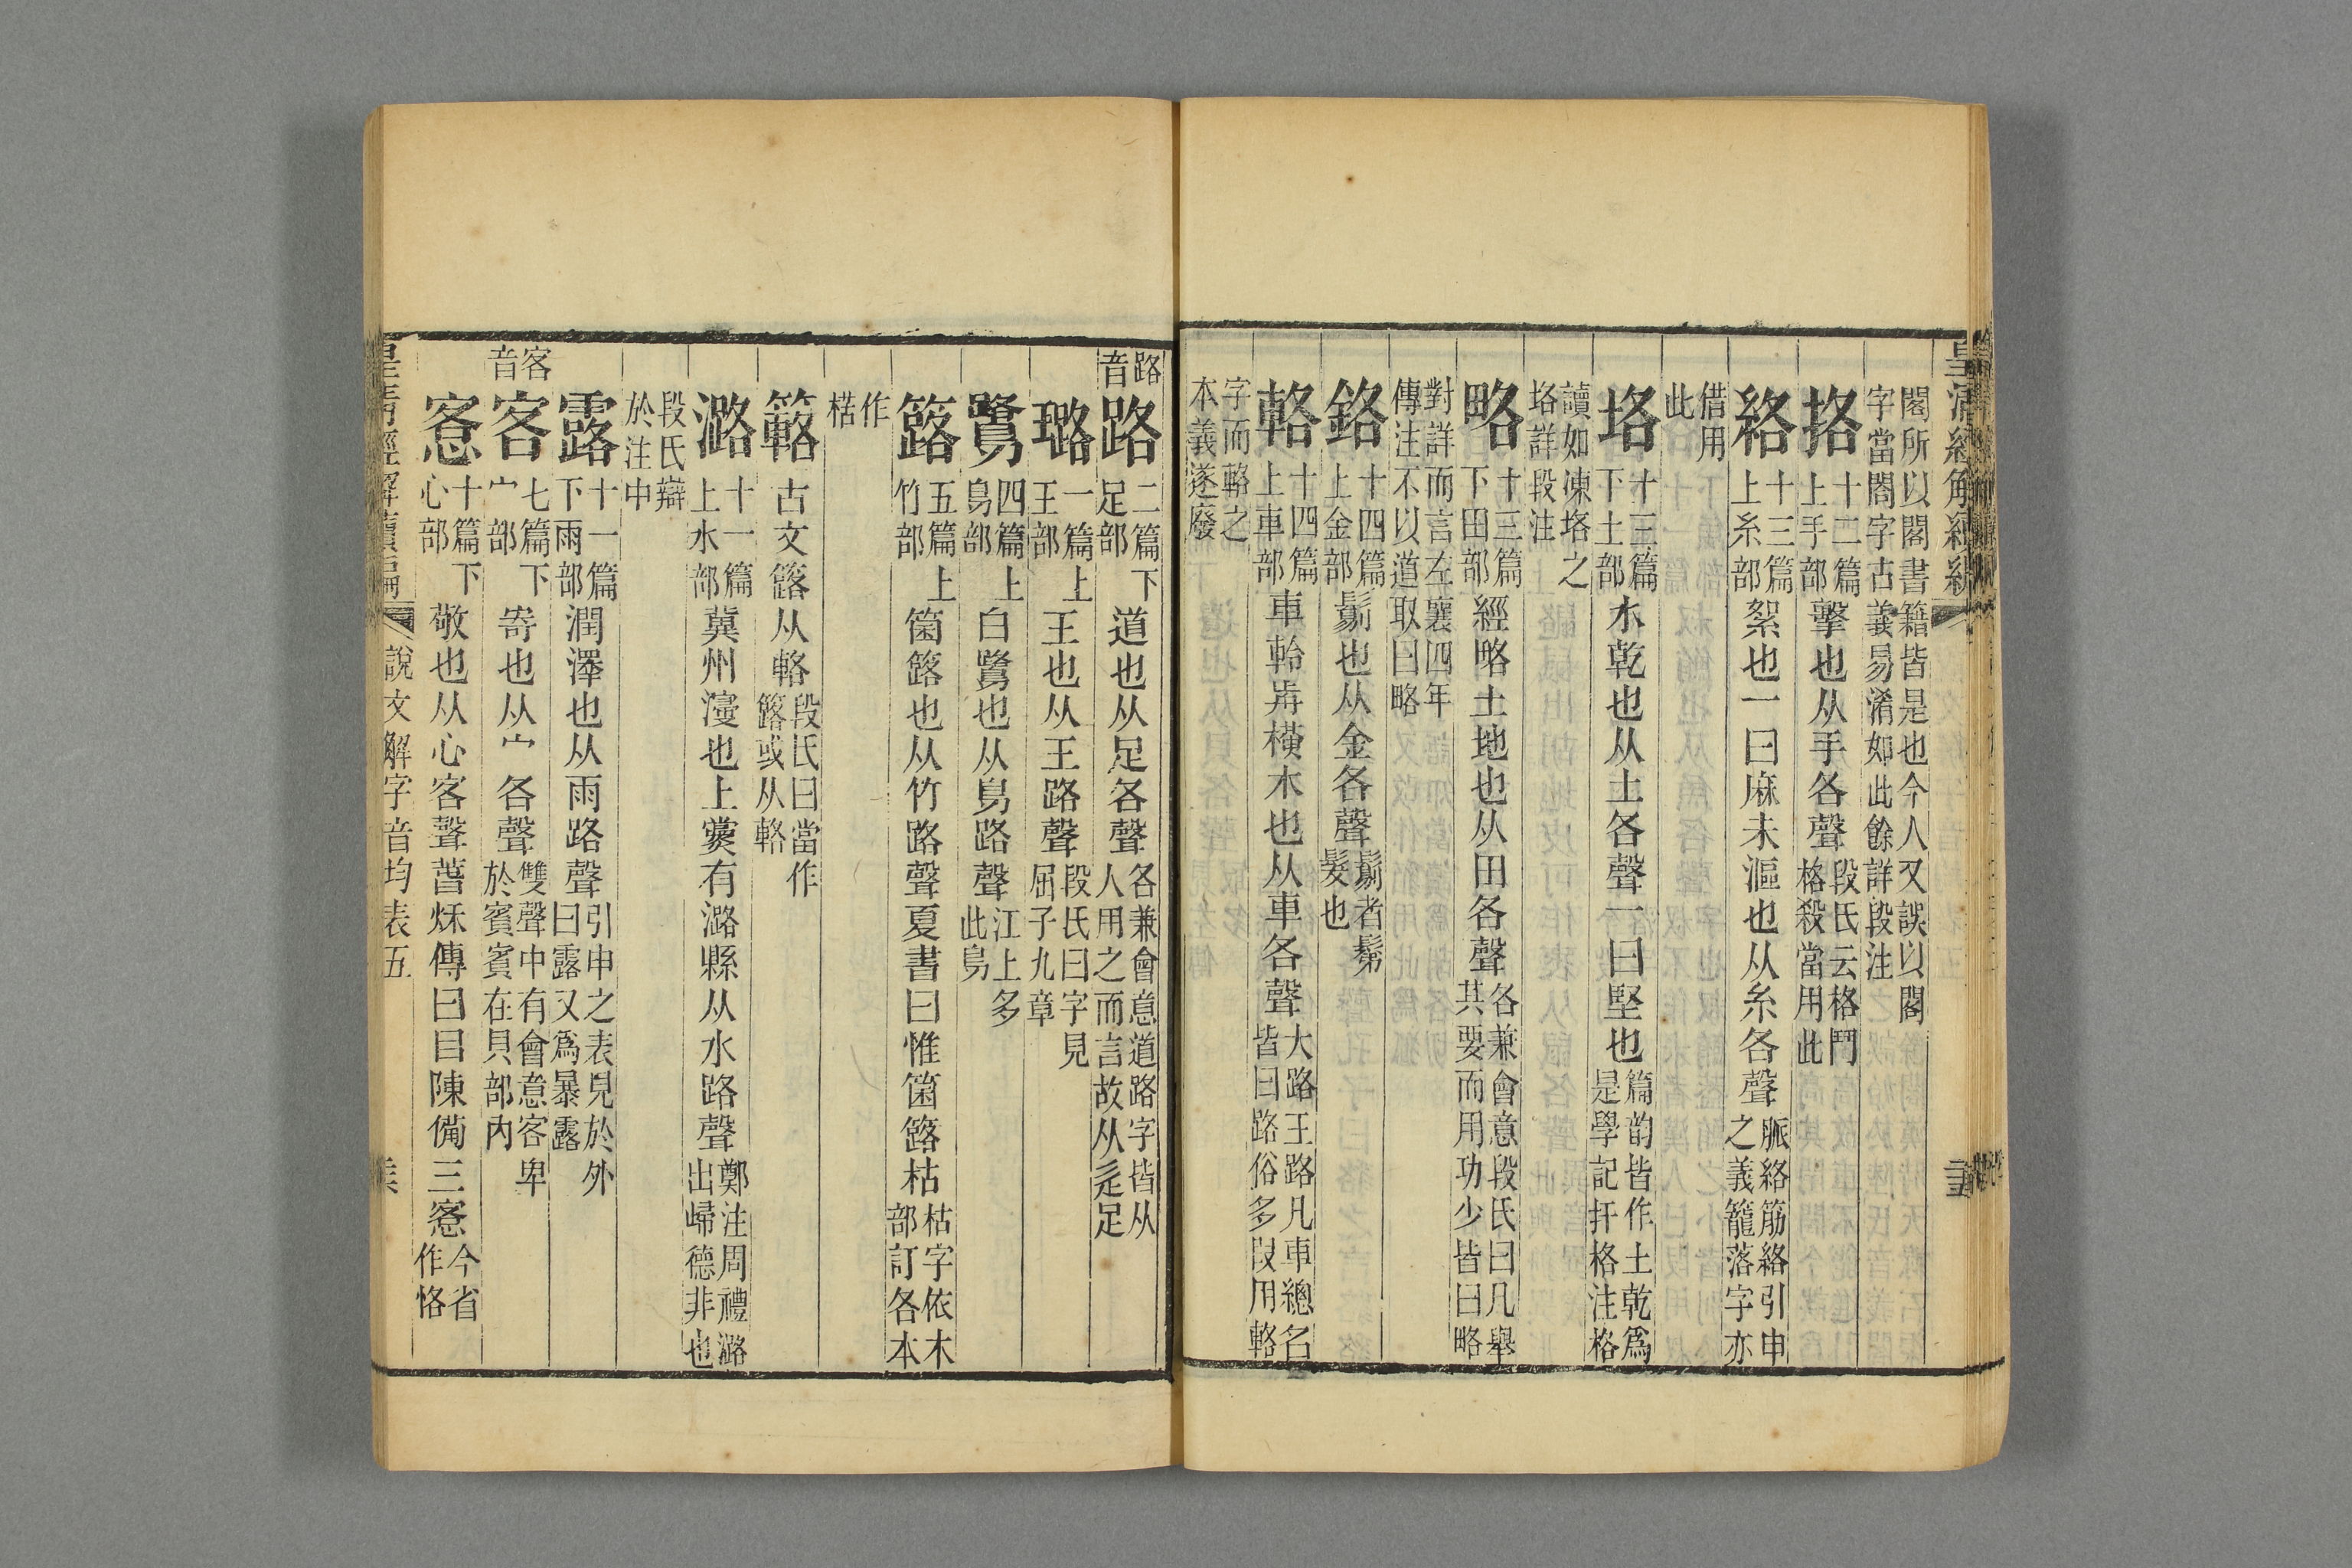 閣所以閣書籍皆是也今人又誤以閣
字當閤字古義易淆如此餘詳段注
挌
十二篇
上手部
擊也从手各聲
段氏云格鬥
格殺當用此
絡
十三篇
上糸部
絮也一曰麻未漚也从糸各聲
脈絡筋絡引申
之義籠落字亦
借用
此
垎
十三篇
下土部
水乾也从土各聲一曰堅也
篇韵皆作土乾爲
是學記扞格注格
讀如凍垎之
垎詳段注
略
十三篇
下田部
經略土地也从田各聲
各兼會意段氏曰凡舉
其要而用功少皆曰略
對詳而言左襄四年
傳注不以道取曰略
鉻
十四篇
上金部
鬄也从金各聲
鬄者鬀
髮也
輅
十四篇
上車部
車軨歬橫木也从車各聲
大路王路凡車總名
皆曰路俗多叚用輅
字而輅之
本義遂廢
路
音
路
二篇下
足部
道也从足各聲
各兼會意道路字皆从
人用之而言故从辵足
璐
一篇上
王部
王也从王路聲
段氏曰字見
屈子九章
鷺
四篇上
鳥部
白鷺也从鳥路聲
江上多
此鳥
簬
五篇上
竹部
箘簬也从竹路聲夏書曰惟箘簬枯
枯字依木
部訂各本
作
楛
簵
古文簬从輅
段氏曰當作
簬或从輅
潞
十一篇
上水部
冀州濅也上黨有潞縣从水路聲
鄭注周禮潞
出歸德非也
段氏辯
於注中
露
十一篇
下雨部
潤澤也从雨路聲
引申之表見於外
曰露又爲暴露
客
音
客
七篇下
宀部
寄也从宀各聲
雙聲中有會意客卑
於賓賓在貝部內
愙
十篇下
心部
敬也从心客聲春秌傳曰目陳備三愙
今省
作恪
說文解字音均表五